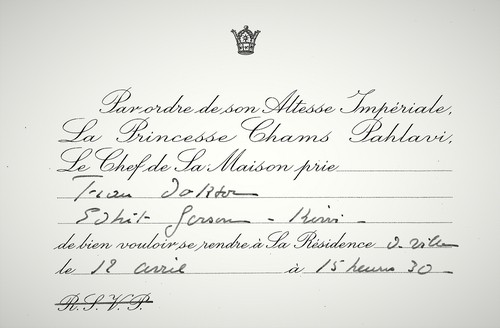 Par ordre de son Altesse Impériale,
La Princesse Chams Pahlavi,
Le Chef de Sa Maison prie
Frau Doktor
Edith Gerson - Kiwi -
de bien vouloir se rendre à Sa Résidence
le 12 avril à 15 heures 30
R.S.V.P.